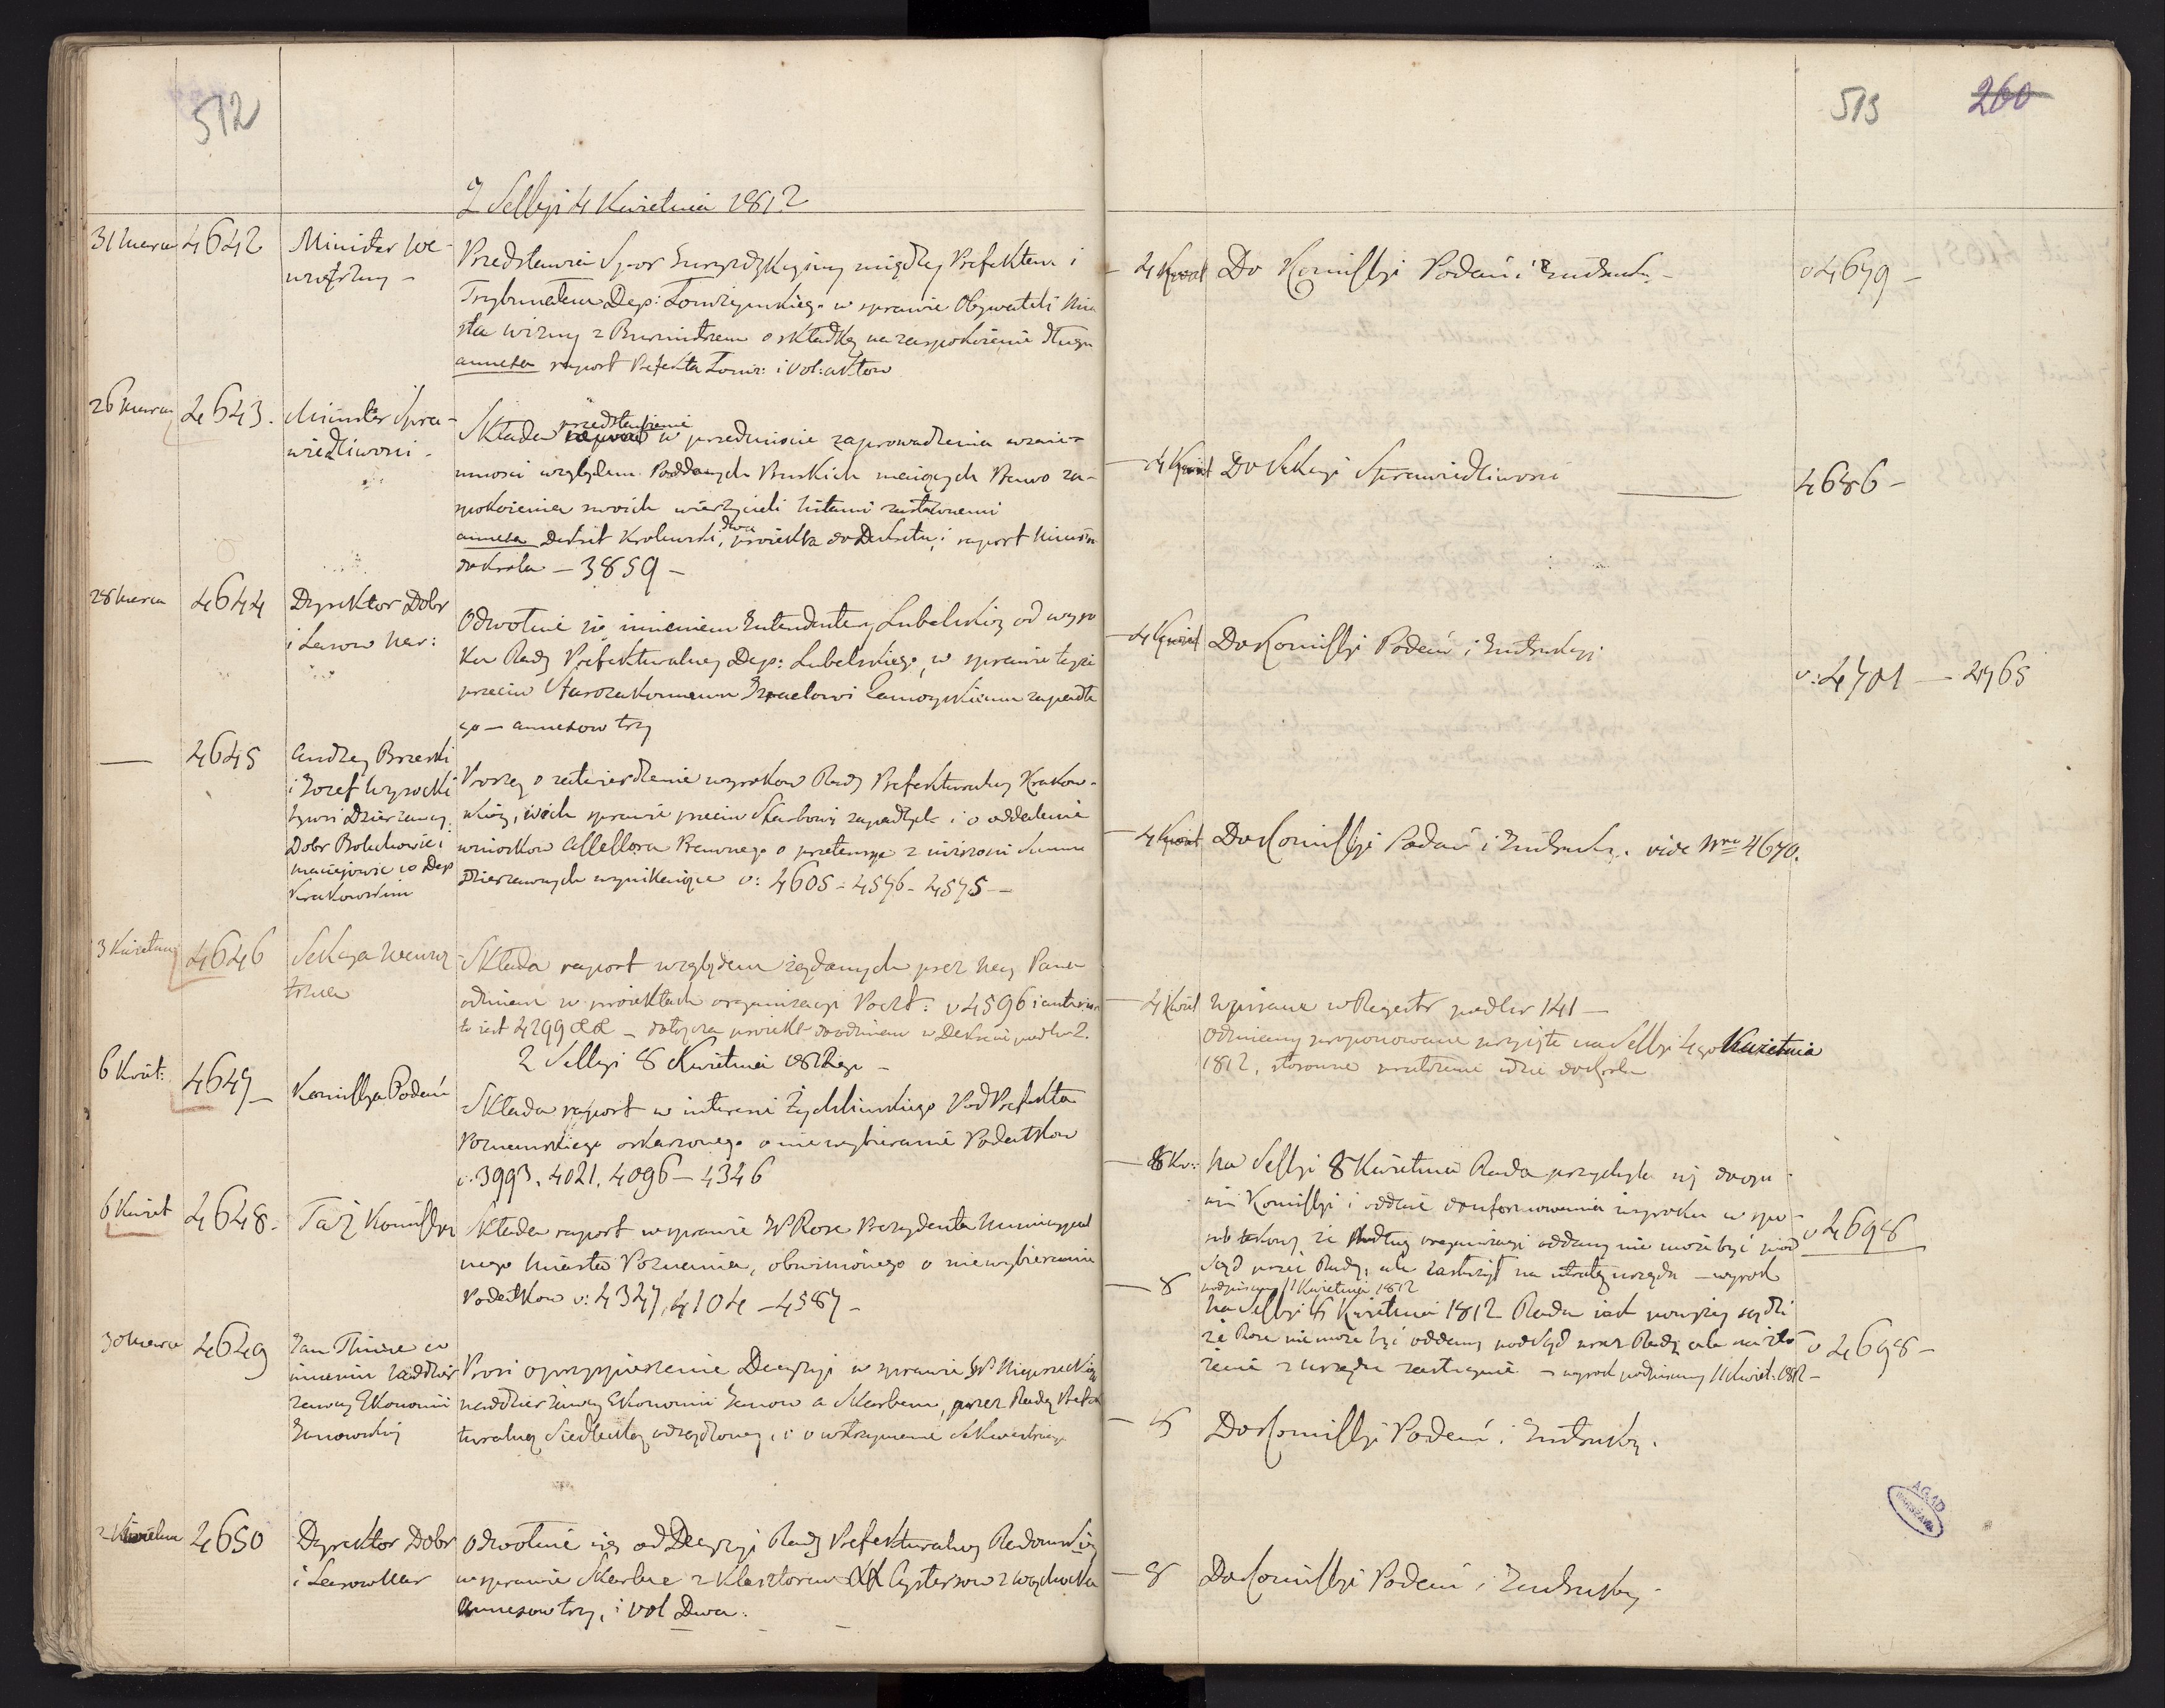 512
Z Sessyi 4 Kwietnia 1812
31 Marca 4642 Minister We-
wnętrzny -
Przedstawia Spor Juryzdykcyiny między Prefektem i
Trybunałem Dep: Łomżyńskiego w sprawie Obywateli Mia
sta Wizny z Burmistrzem o składkę na zaspokoienie długu
annexa raport Prefekta Łomż: i vol: aktow
26 Marca 4643. Minister Spra-
wiedliwosci -
Składa przedstawienie w przedmiocie zaprowadzenia wzaie-
mnosci względem Poddanych Pruskich maiących Prawo za-
spokoienia swoich wierzycieli listami zastawnemi
annexa Dekret Krolewski, dwa proiekta do Dekretu, i raport Minis
do Krola - 3859 -
28 Marca 4644 Dyrektor Dobr
i Lasow Nar:
Odwołuie się imieniem Intendentury Lubelskiey od wyro
ku Rady Prefekturalney Dep: Lubelskiego, w sprawie teyże
przeciw Starozakonnemu Izraelowi Zamoyskiemu zapadłe
go - annexow trzy
— 4645 Andrzey Brzeski
i Jozef Wysocki
bywsi Dzierzawcy
Dobr Boluchowic i
Maciejowic w Dep
Krakowskim
Proszą o zatwierdzenie wyrokow Rady Prefekturalney Krakow-
skiey, w ich sprawie przeciw Skarbowi zapadłych i o oddalenie
wnioskow Assessora Prawnego o pretensye z różności Summ
Dzierzawnych wynikaiące v: 4605 - 4576 - 4575 -
3 Kwietnia 4646 Sekcya Wewnę
trzna
Składa raport względem żądanych przez Ney Pana
odmian w proiektach organizacyi Poczt: v 4596 i anteriora
to iest 4299 &&. - dołącza proiekt do odmian w Dekrecie pod Lr 2.
Z Sessyi 8 Kwietnia 1812go -
6 Kwiet: 4647 - Komissya Podań
Składa raport w interesie Zychlinskiego PodPrefekta
Poznanskiego oskarżonego o nie wybieranie Podatkow
v. 3993. 4021. 4096 - 4346
6 Kwiet 4648. Taż Komissya
Składa raport w sprawie JP Rose Prezydenta Municypal
nego Miasta Poznania, obwinionego o niewybieranie
Podatkow v: 4347, 4104 - 4587 -
30 Marca 4649 Jan Thiere w
imieniu Naddzier
żawcy Ekonomii
Janowskiey
Prosi o przyspieszenie Decyzyi w sprawie
naddzierżawcy Ekonomii Janow a Skarbem, przez Radę Prefe
kturalną Siedlecką osądzoney, i o wstrzymanie Sekwestracyi
2 Kwietnia 4650 Dyrektor Dobr
i Lasow Nar
Odwołuie się od Decyzyi Rady Prefekturalney Radomskiey
w sprawie Skarbu z Klasztorem XX Cystersow z Wąchocka
Annexow trzy, i vol Dwa.
513 260
4 Kwiet Do Komissyi Podań i Instrukcy - v 4679 -
4 Kwiet Do Sekcyi Sprawiedliwosci — 4686 -
4 Kwiet Do Komissyi Podań i Instrukcyi v: 4701 — 4765
4 Kwiet Do Komissyi Podań i Instrukcy. vide Nro 4670.
4 Kwiet Wpisane w Regestr pod Lr 141 -
Odmiany proponowane przyięte na Sessyi 4go Kwietnia
1812, stosowne przełożenie idzie do Krola
8 Kw: Na Sessyi 8 Kwietnia Rada przychyla się do opi
nii Komissyi i oddaie do uformowania wyroku w spo-
sob takowy że podług organizacyi oddany nie może być pod
Sąd przez Radę, ale zasłużył na utratę urzędu - wyrok
podpisany 11 Kwietnia 1812
v 4698
8 Na Sessyi 8 Kwietnia 1812 Rada iest powyżey sądzi
że Rose nie może być oddany pod Sąd przez Radę ale na zło
żenie z urzędu zasługuie - wyrok podpisany 11 Kwiet: 1812 -
v 4698 -
8 Do Komissyi Podań i Instrukcy.
8 Do Komissyi Podań i Instrukcy.
AGAD
WARSZAWA